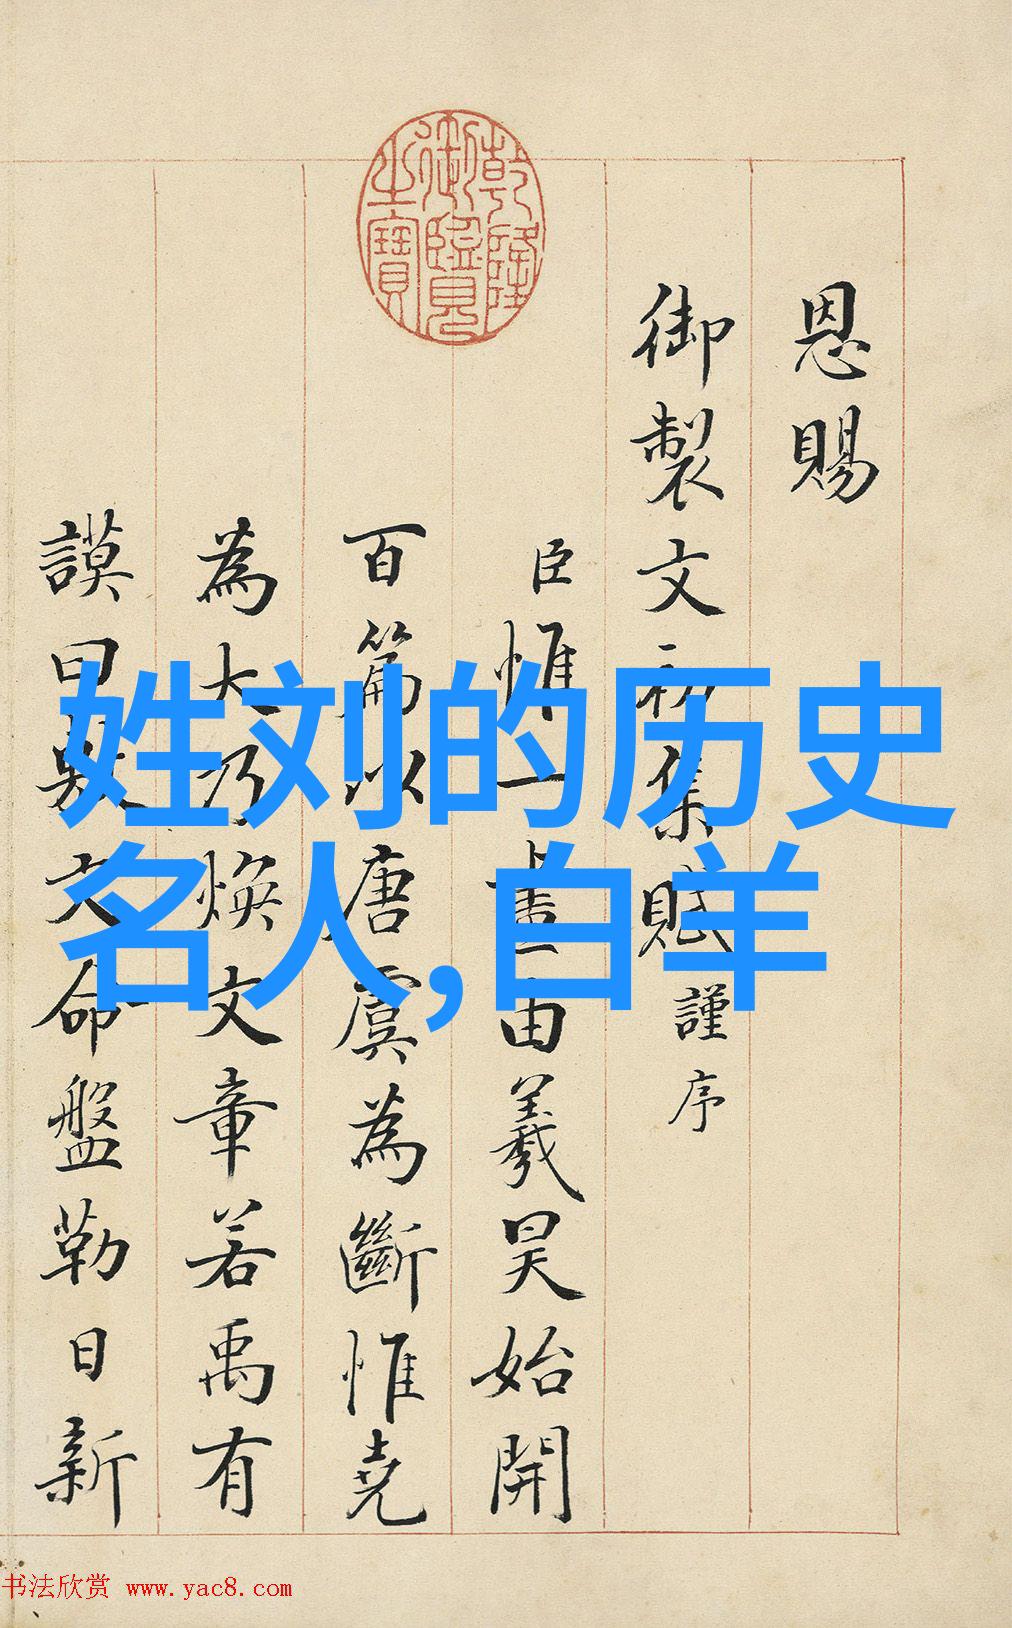 恩賜
御製文初集賦謹序
臣惟一畫由羲昊始開
百篇以唐虞為斷惟堯
為大乃煥文章若禹有
謨曰敷文命盤勒日新
乾隆御覽之寶
姓刘的历史
名人,白羊
书法欣赏 www.yac8.com